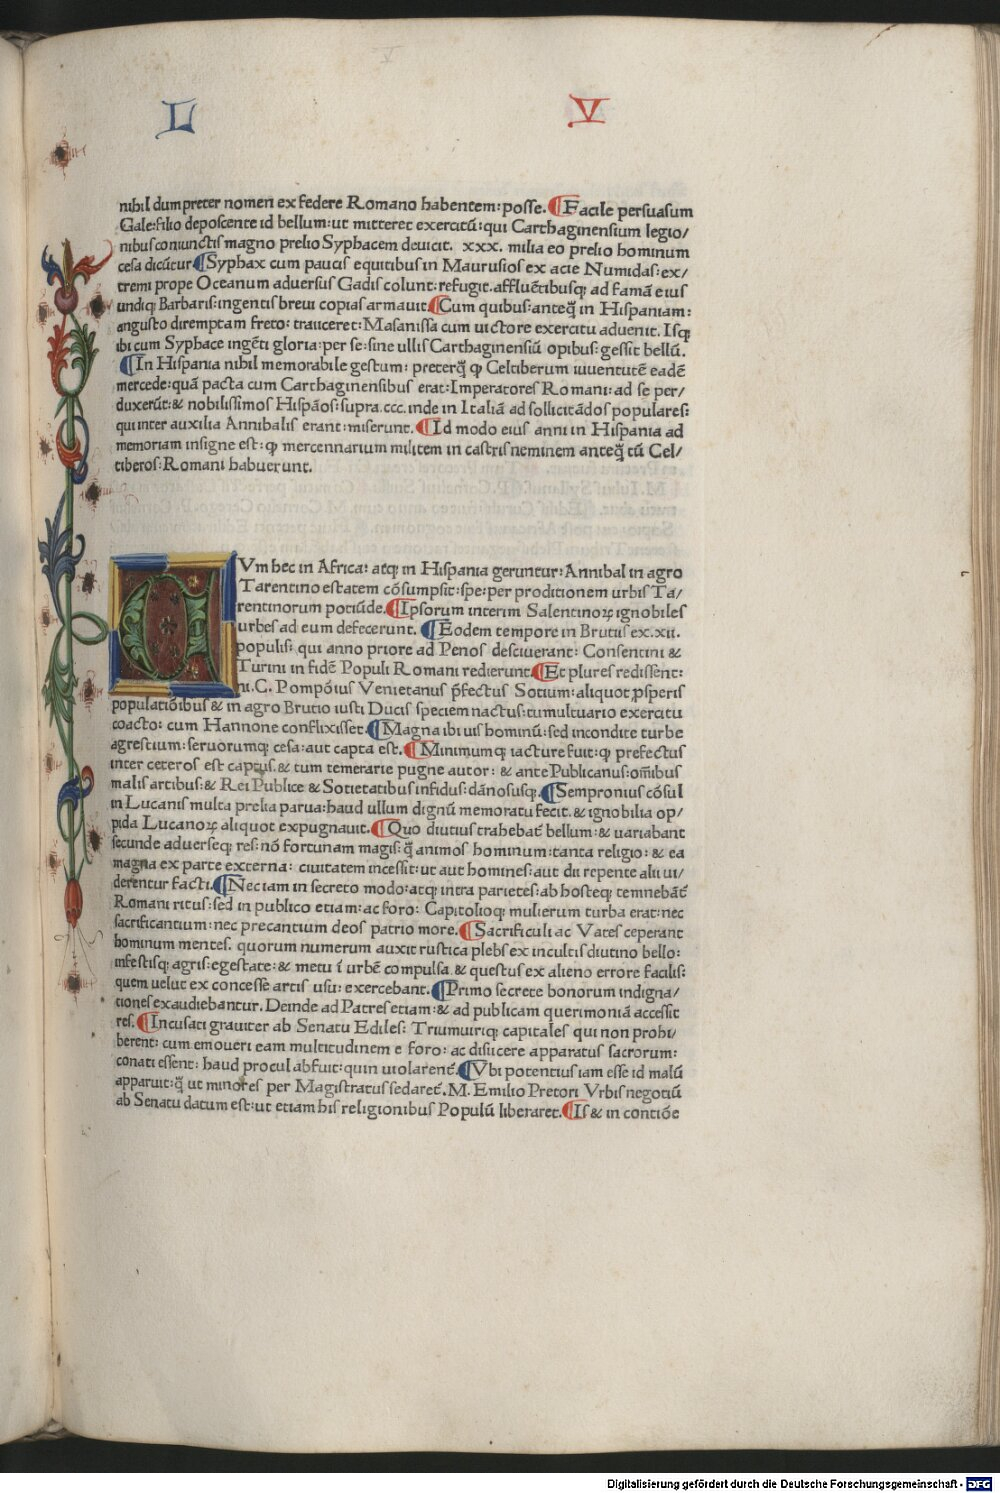 L V
nihil dum preter nomen ex federe Romano habentem: posse. ¶Facile persuasum
Gale: filio deposcente id bellum: ut mitteret exercitū: qui Carthaginensium legio/
nibus coniunctis magno prelio Syphacem deuicit. xxx. milia eo prelio hominum
cesa dicūtur ¶Syphax cum paucis equitibus in Maurusios ex acie Numidas: ex/
tremi prope Oceanum aduersus Gadis colunt: refugit. affluētibusq; ad famā eius
undiq; Barbaris: ingentis breui copias armauit ¶Cum quibus: anteq̄ in Hispaniam:
angusto diremptam freto: traiiceret: Masanissa cum uictore exercitu aduenit. Isq;
ibi cum Syphace ingēti gloria: per se: sine ullis Carthaginensiū opibus: gessit bellū.
¶In Hispania nihil memorabile gestum: preterq̄ ꝙ Celtiberum iuuentutē eadē
mercede: quā pacta cum Carthaginensibus erat: Imperatores Romani: ad se per/
duxerūt: & nobilissimos Hispāos: supra. ccc. inde in Italiā ad sollicitādos populares:
qui inter auxilia Annibalis erant: miserunt. ¶Id modo eius anni in Hispania ad
memoriam insigne est: ꝙ mercennarium militem in castris neminem anteq̄ tū Cel/
tiberos: Romani habuerunt.
Vm hec in Africa: atq; in Hispania geruntur: Annibal in agro
Tarentino estatem cōsumpsit: spe: per proditionem urbis Ta/
rentinorum potiūde. ¶Ipsorum interim Salentinoꝝ ignobiles
urbes ad eum defecerunt. ¶Eodem tempore in Brutiis ex. xii.
populis: qui anno priore ad Penos desciuerant: Consentini &
Turini in fidē Populi Romani redierunt ¶Et plures redissent:
ni. C. Pompōius Venietanus p̄fectus Sotium: aliquot ꝓsperis
populatiōibus & in agro Brutio iusti Ducis speciem nactus: tumultuario exercitu
coacto: cum Hannone conflixisset ¶Magna ibi uis hominū: sed incondite turbe
agrestium: seruorumq; cesa: aut capta est. ¶Minimumq; iacture fuit: ꝙ prefectus
inter ceteros est captus. & tum temerarie pugne autor: & ante Publicanus: om̄ibus
malis artibus: & Rei Publice & Sotietatibus infidus: dānosusq;. ¶Sempronius cōsul
in Lucanis multa prelia parua: haud ullum dignū memoratu fecit. & ignobilia op/
pida Lucanoꝝ aliquot expugnauit. ¶Quo diutius trahebat̄ bellum: & uariabant
secunde aduerseq; res: nō fortunam magis: q̄ animos hominum: tanta religio: & ea
magna ex parte externa: ciuitatem incessit: ut aut homines: aut dii repente alii ui/
derentur facti. ¶Nec iam in secreto modo: atq; intra parietes: ab hosteq; temnebāt̄
Romani ritus: sed in publico etiam: ac foro: Capitolioq; mulierum turba erat: nec
sacrificantium: nec precantium deos patrio more. ¶Sacrificuli ac Vates ceperant
hominum mentes. quorum numerum auxit rustica plebs ex incultis diutino bello:
infestisq; agris: egestate: & metu ī urbē compulsa. & questus ex alieno errore facilis:
quem uelut ex concesse artis usu: exercebant. ¶Primo secrete bonorum indigna/
tiones exaudiebantur. Deinde ad Patres etiam: & ad publicam querimoniā accessit
res. ¶Incusati grauiter ab Senatu Ediles: Triumuiriq; capitales qui non prohi/
berent: cum emoueri eam multitudinem e foro: ac disiicere apparatus sacrorum:
conati essent: haud procul abfuit: quin uiolarent̄. ¶Vbi potentius iam esse id malū
apparuit: q̄ ut minores per Magistratus sedaret̄. M. Emilio Pretori Vrbis negotiū
ab Senatu datum est: ut etiam his religionibus Populū liberaret. ¶Is & in contiōe
Digitalisierung gefördert durch die Deutsche Forschungsgemeinschaft - DFG